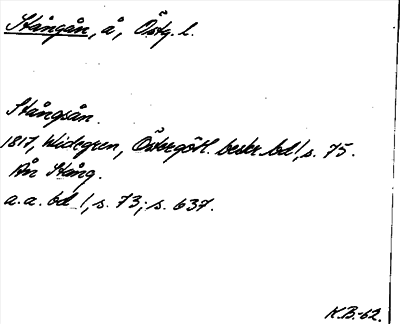 Stångån, å, Östg. l.
Stångsån.
1817, Widegren, Östergötl. beskr. bd 1, s. 75.
Ån Stång.
a. a. bd 1, s. 73; s. 637.
K.B.-62.